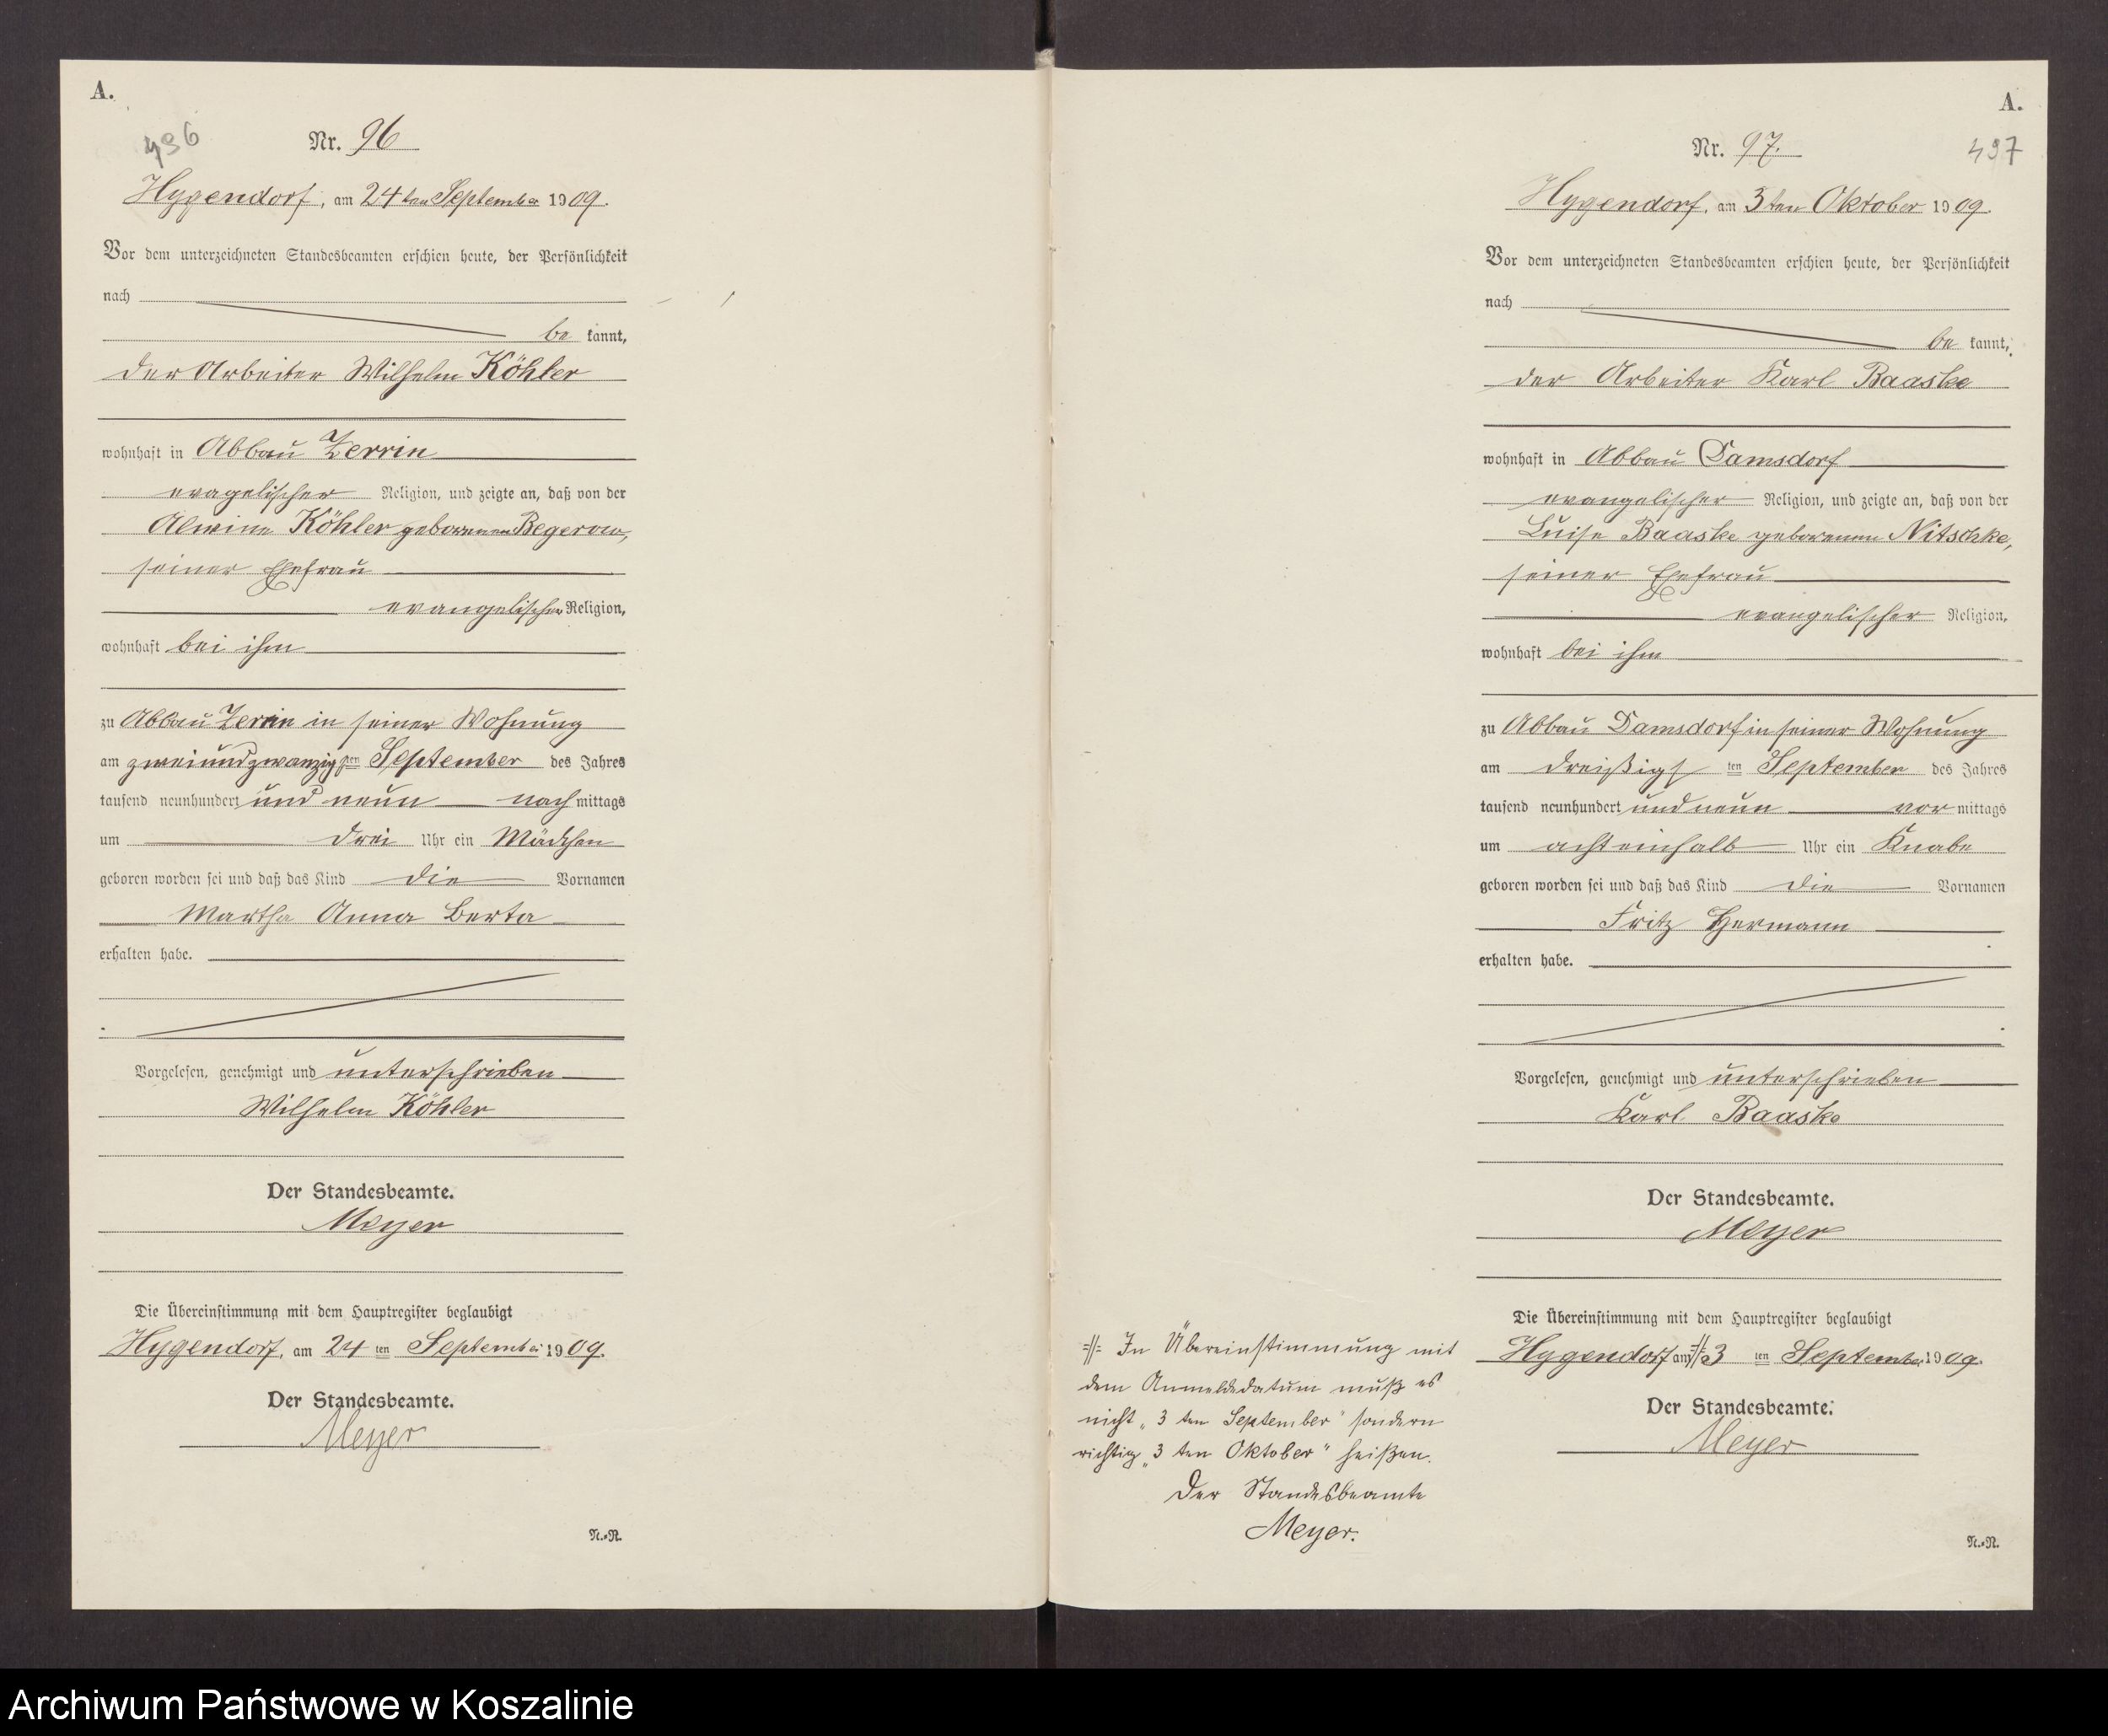 A.
496
Nr. 96
Hygendorf, am 24ten September 1909.
Vor dem unterzeichneten Standesbeamten erschien heute, der Persönlichkeit
nach
be kannt,
der Arbeiter Wilhelm Köhler
wohnhaft in Abbau Zerrin
evagelischer Religion, und zeigte an, daß von der
Alwine Köhler geborenen Begerow,
seiner Ehefrau
evangelischer Religion,
wohnhaft bei ihm
zu Abbau Zerrin in seiner Wohnung
am zweiundzwanzigsten September des Jahres
tausend neunhundert und neun nach mittags
um drei Uhr ein Mädchen
geboren worden sei und daß das Kind die Vornamen
Martha Anna Berta
erhalten habe.
Vorgelesen, genehmigt und unterschrieben
Wilhelm Köhler
Der Standesbeamte.
Meyer
Die Übereinstimmung mit dem Hauptregister beglaubigt
Hygendorf, am 24 ten September 1909.
Der Standesbeamte.
Meyer
N.-R.
A.
Nr. 97.
497
Hygendorf, am 3ten Oktober 1909.
Vor dem unterzeichneten Standesbeamten erschien heute, der Persönlichkeit
nach
be kannt,
der Arbeiter Karl Baaske
wohnhaft in Abbau Damsdorf
evangelischer Religion, und zeigte an, daß von der
Luise Baaske geborenen Nitschke,
seiner Ehefrau
evangelischer Religion,
wohnhaft bei ihm
zu Abbau Damsdorf in seiner Wohnung
am dreißigs ten September des Jahres
tausend neunhundert und neun vor mittags
um achteinhalb Uhr ein Knabe
geboren worden sei und daß das Kind die Vornamen
Fritz Hermann
erhalten habe.
Vorgelesen, genehmigt und unterschrieben
Karl Baaske
Der Standesbeamte.
Meyer
Die Übereinstimmung mit dem Hauptregister beglaubigt
Hygendorf am 3 ten September 1909.
Der Standesbeamte.
Meyer
N.-R.
In Übereinstimmung mit
dem Anmeldedatum muß es
nicht „3 ten September" sondern
richtig „3 ten Oktober" heißen.
Der Standesbeamte
Meyer.
Archiwum Państwowe w Koszalinie